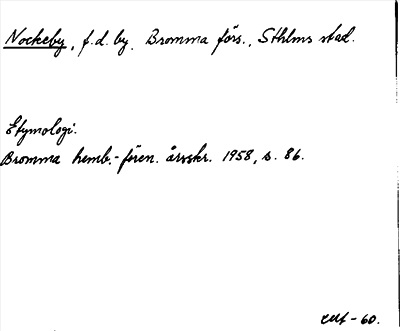 Nockeby, f.d. by. Bromma förs., Sthlms stad.
Etymologi.
Bromma hemb.-fören. årsskr. 1958, s. 86.
-60.